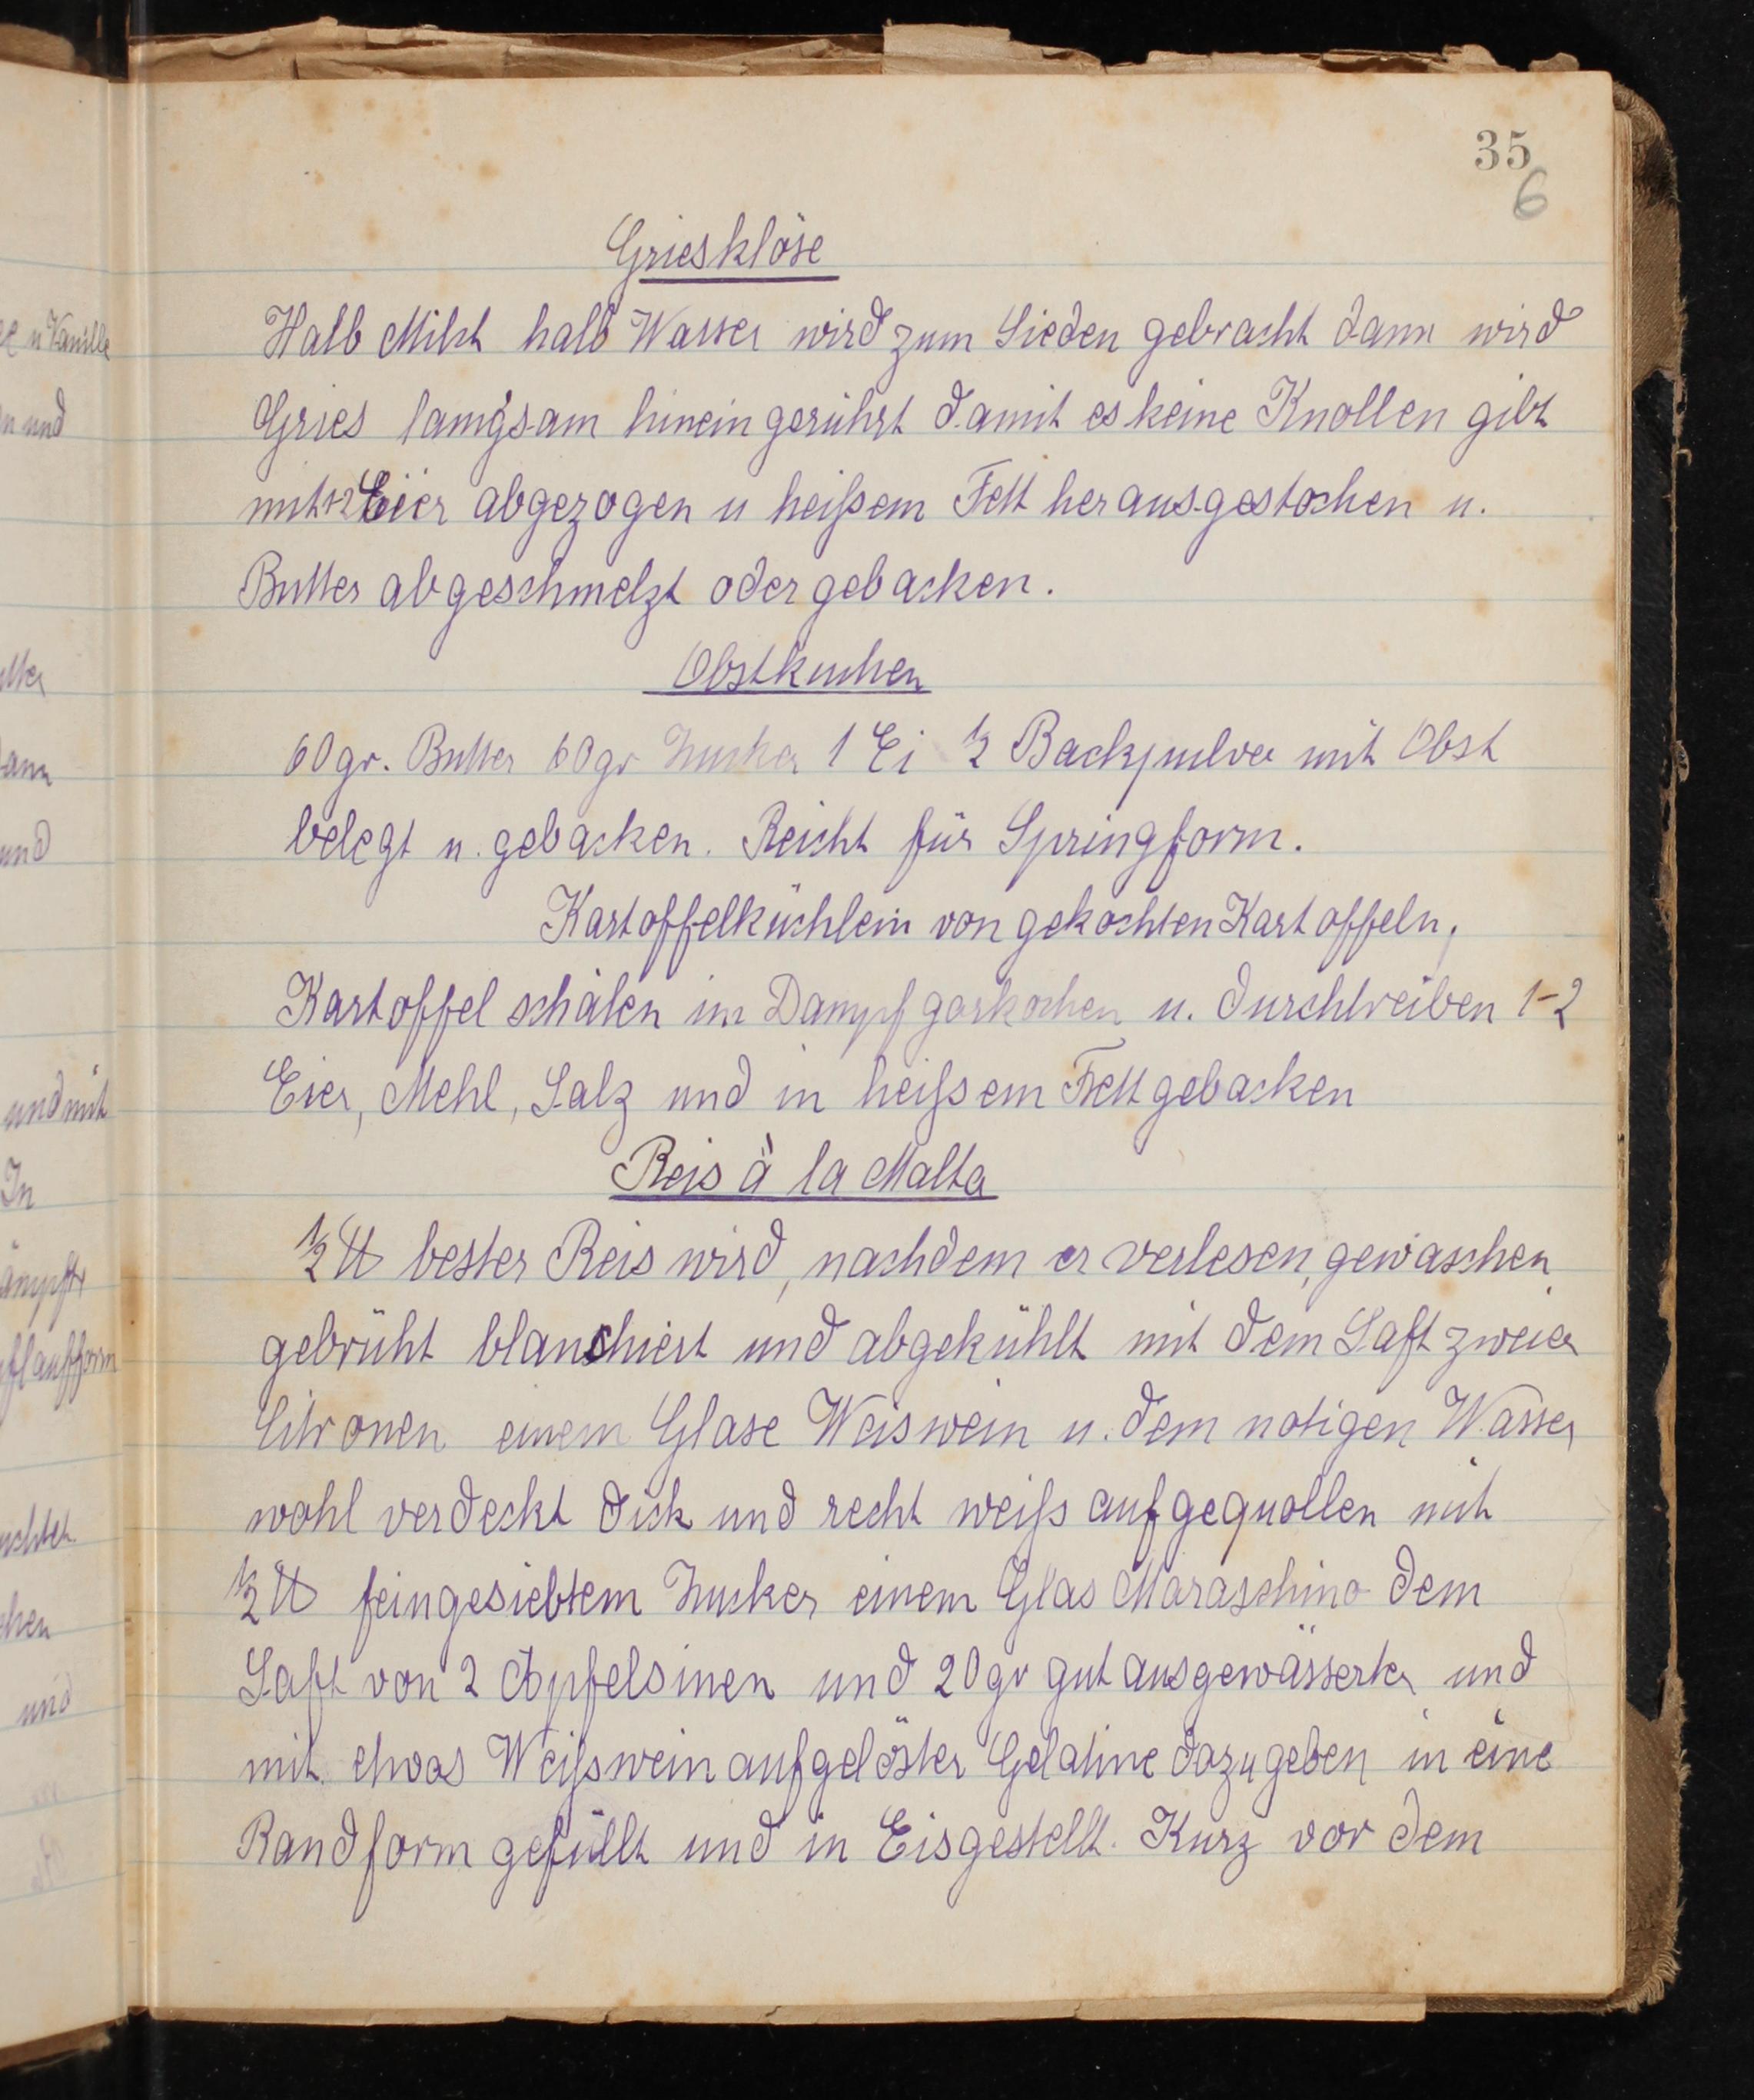 35
6
Griesklöse
Halb Milch halb Wasser wird zum Sieden gebracht dann wird
Gries langsam hinein gerührt damit es keine Knollen gibt
mit 1-2 Eier abgezogen u heißem Fett herausgestochen u.
Butter abgeschmelzt oder gebacken.
Obstkuchen
60 gr. Butter 60 gr Zucker 1 Ei ½ Backpulver mit Obst
belegt u. gebacken. Reicht für Springform.
Kartoffelküchlein von gekochten Kartoffeln,
Kartoffel schälen im Dampf garkochen u. durchtreiben 1-2
Eier, Mehl, Salz und in heißem Fett gebacken
Reis à la Malta
½ ℔ bester Reis wird, nachdem er verlesen, gewaschen
gebrüht blanchiert und abgekühlt mit dem Saft zweier
Citronen einem Glase Weiswein u. dem notigen Wasser
wohl verdeckt dick und recht weiß aufgequollen mit
½ ℔ feingesiebtem Zucker einem Glas Maraschino dem
Saft von 2 Apfelsinen und 20 gr gut ausgewässerter und
mit etwas Weißwein aufgelöster Gelatine dazugeben in eine
Randform gefüllt und in Eisgestellt. Kurz vor dem
u Vanille
und
und
und mit
In
und